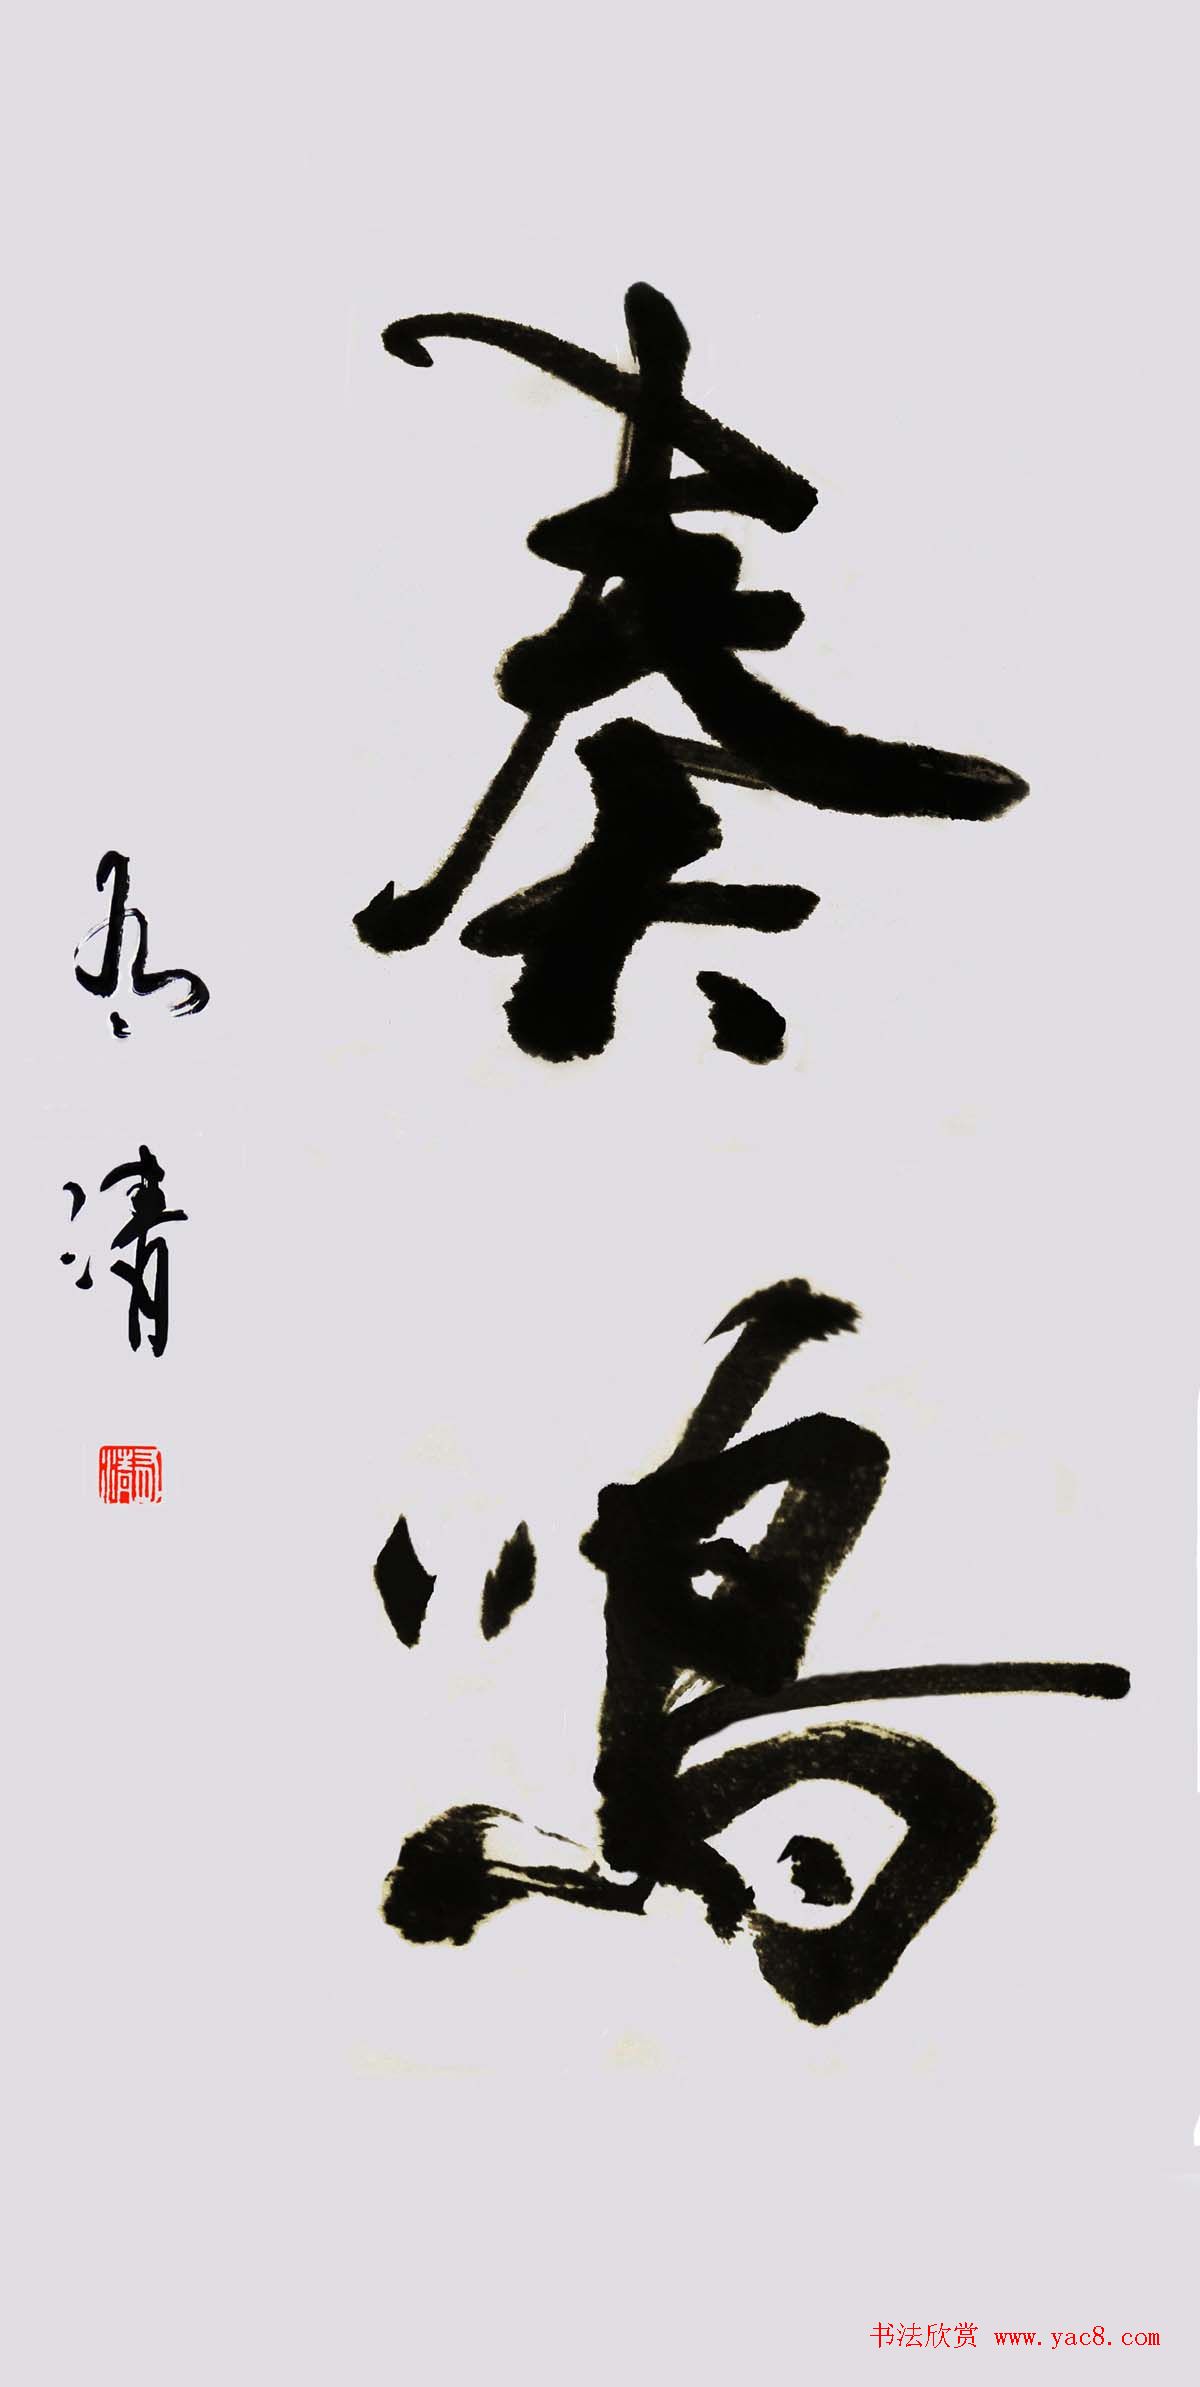 奏鸣
清
书法欣赏 www.yac8.com